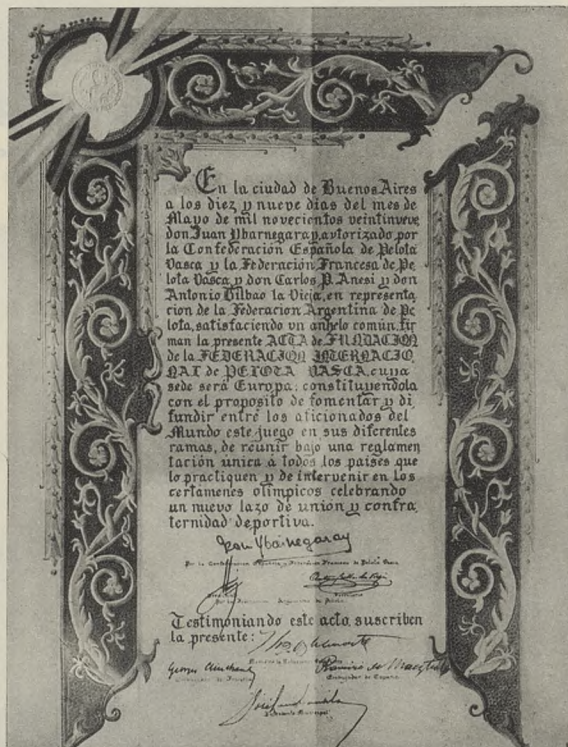 En la ciudad de Buenos Aires
a los diez y nueve dias del mes de
Mayo de mil novecientos veintinueve
don Juan Ybarnegaray, autorizado por
la Confederación Española de Pelota
Vasca y la Federación Francesa de Pe
lota Vasca y don Carlos P. Anesi y don
Antonio Bilbao la Vieja, en representa
cion de la Federacion Argentina de Pe
lota, satisfaciendo un anhelo común, fir
man la presente ACTA de FUNDACION
de la FEDERACION INTERNACIO
NAL de PELOTA VASCA, cuya
sede será Europa; constituyendola
con el proposito de fomentar y di
fundir entre los aficionados del
Mundo este juego en sus diferentes
ramas, de reunir bajo una reglamen
tación unica à todos los paises que
lo practiquen y de intervenir en los
certamenes olimpicos celebrando
un nuevo lazo de unión y confra
ternidad deportiva.
Jean Ybarnegaray
Por la Confederacion Española y Federacion Francesa de Pelota Vasca
Por la Federacion Argentina de Pelota
Testimoniando este acto, suscriben
la presente:
Ramiro de Maeztu
Embajador de Francia
Embajador de España